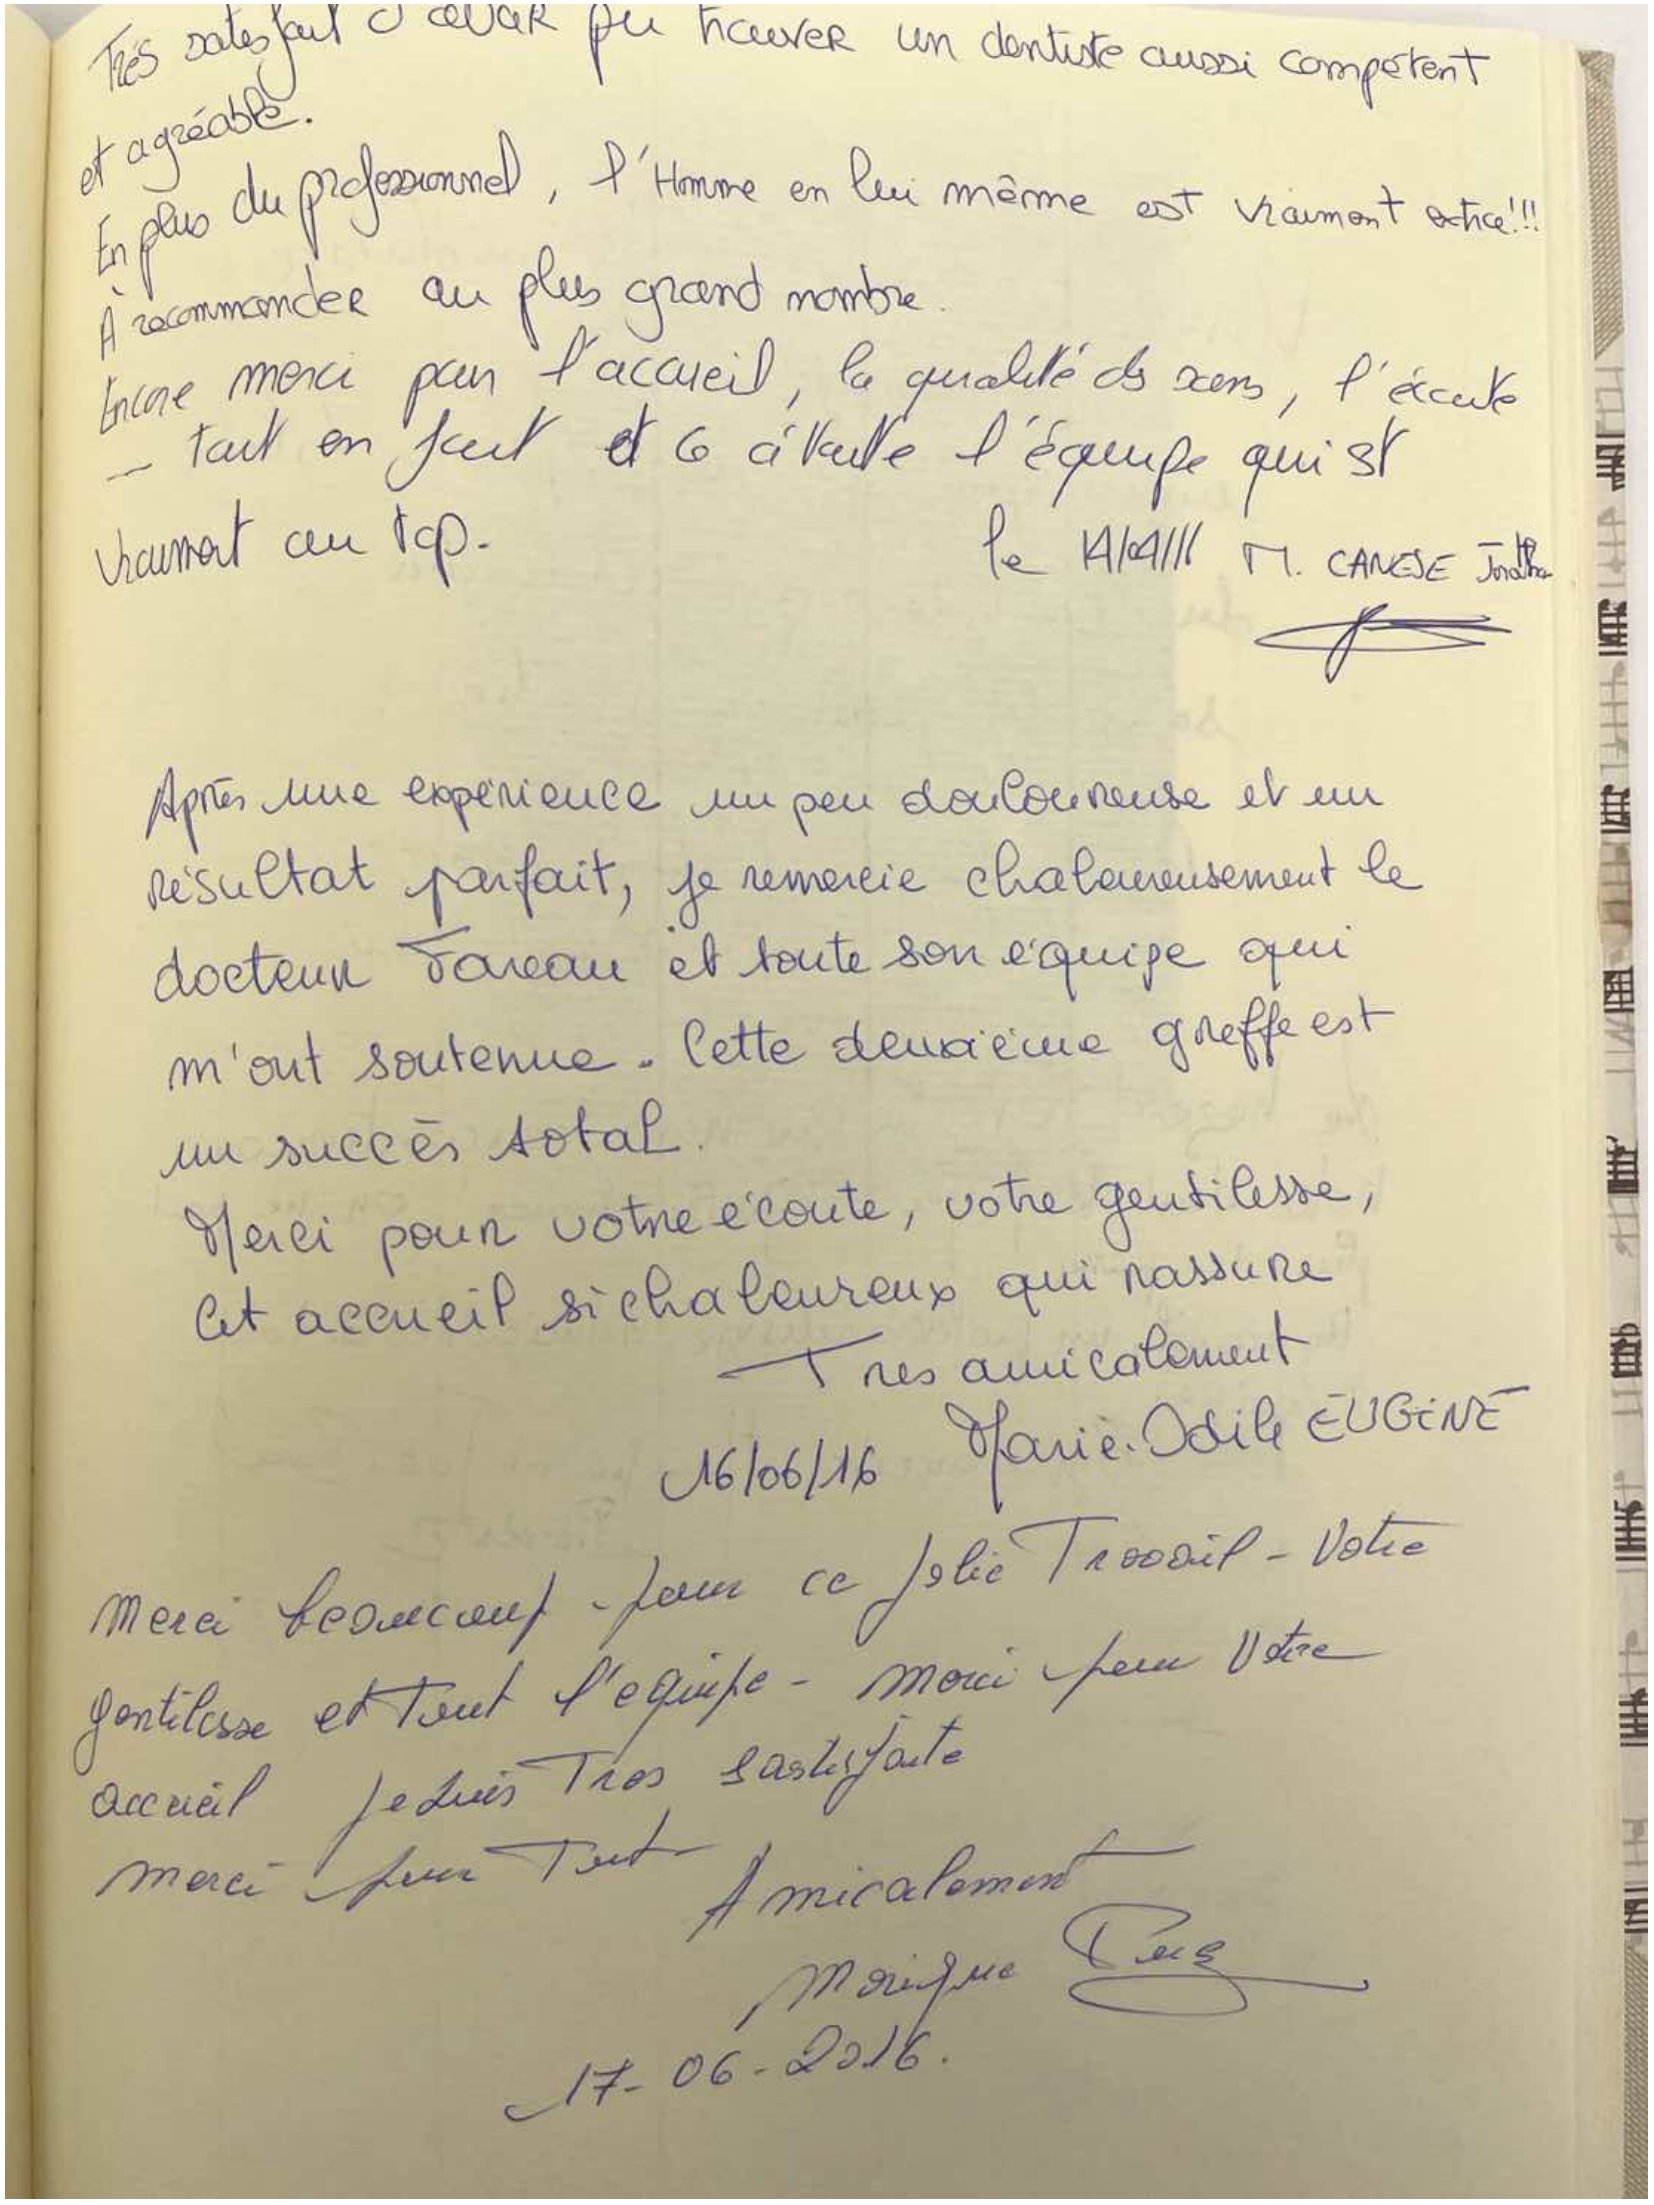 Très satisfait d'avoir pu trouver un dentiste aussi compétent
et agréable.
En plus du professionnel, l'Homme en lui même est vraiment !!!
À recommander au plus grand nombre.
Encore merci pour l'accueil, la qualité des soins, l'écoute
tout en fait et à toute l'équipe qui est
vraiment au top.
le M. CANESE
Après une expérience un peu douloureuse et un
résultat parfait, je remercie chaleureusement le
docteur et toute son équipe qui
m'ont soutenue. Cette deuxième greffe est
un succès total.
Merci pour votre écoute, votre gentilesse,
Cet accueil si chaleureux qui rassure
Tres amicalement
16/06/16 Marie-Odile EUGENE
Merci beaucoup pour ce jolie Travail - Votre
gentilesse et Tout l'equipe - merci pour Votre
accueil je suis Tres sastisfaite
merci pour Tout
Amicalement
Monique
17-06-2016.